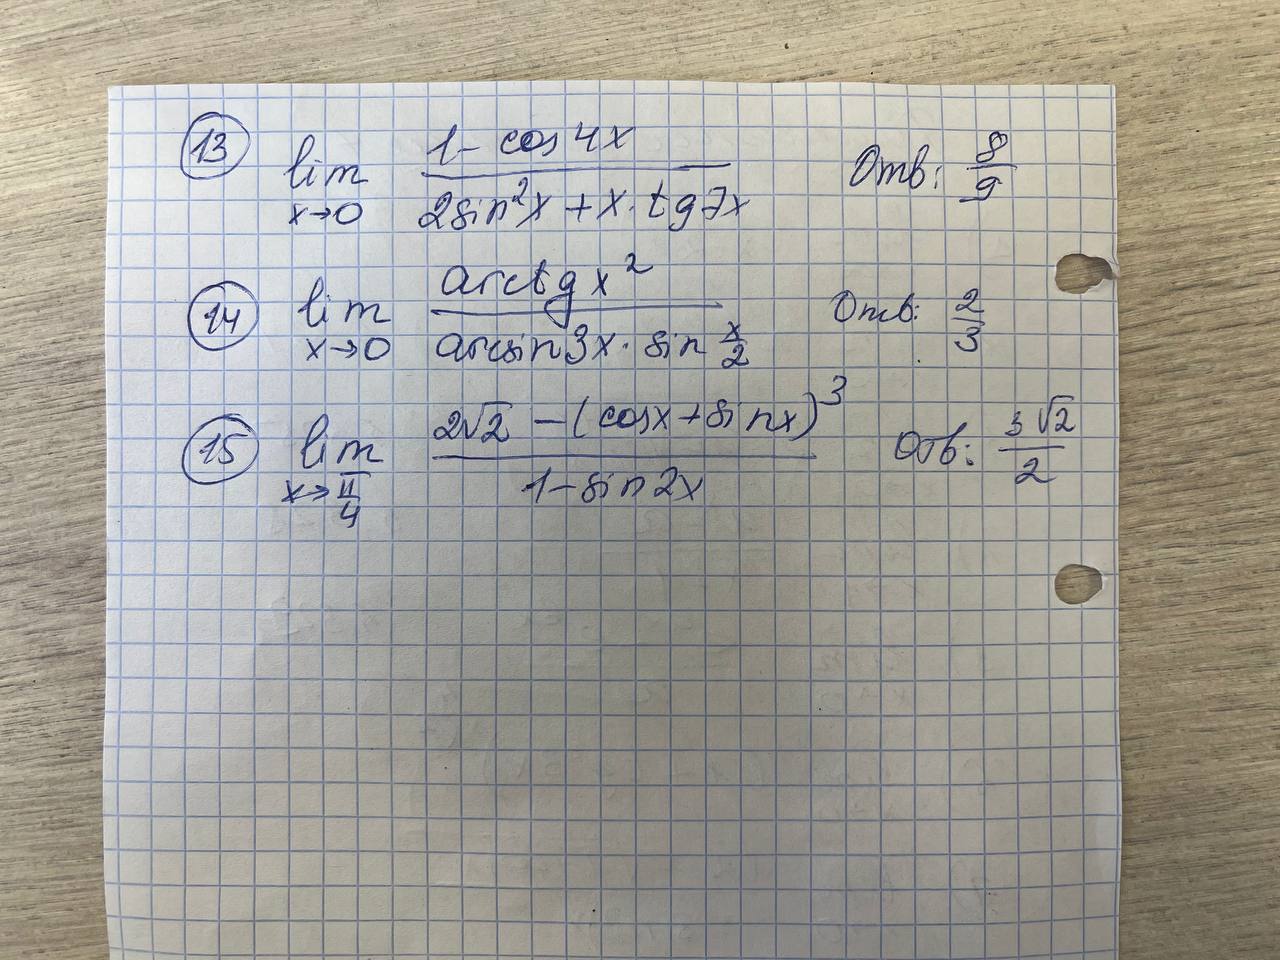 13 lim x→0 (1 - cos 4x) / (2sin²x + x · tg 7x) Отв: 8/9
14 lim x→0 arctg x² / (arcsin 3x · sin x/2) Отв: 2/3
15 lim x→π/4 (2√2 - (cosx + sinx)³) / (1 - sin 2x) Отв: 3√2/2